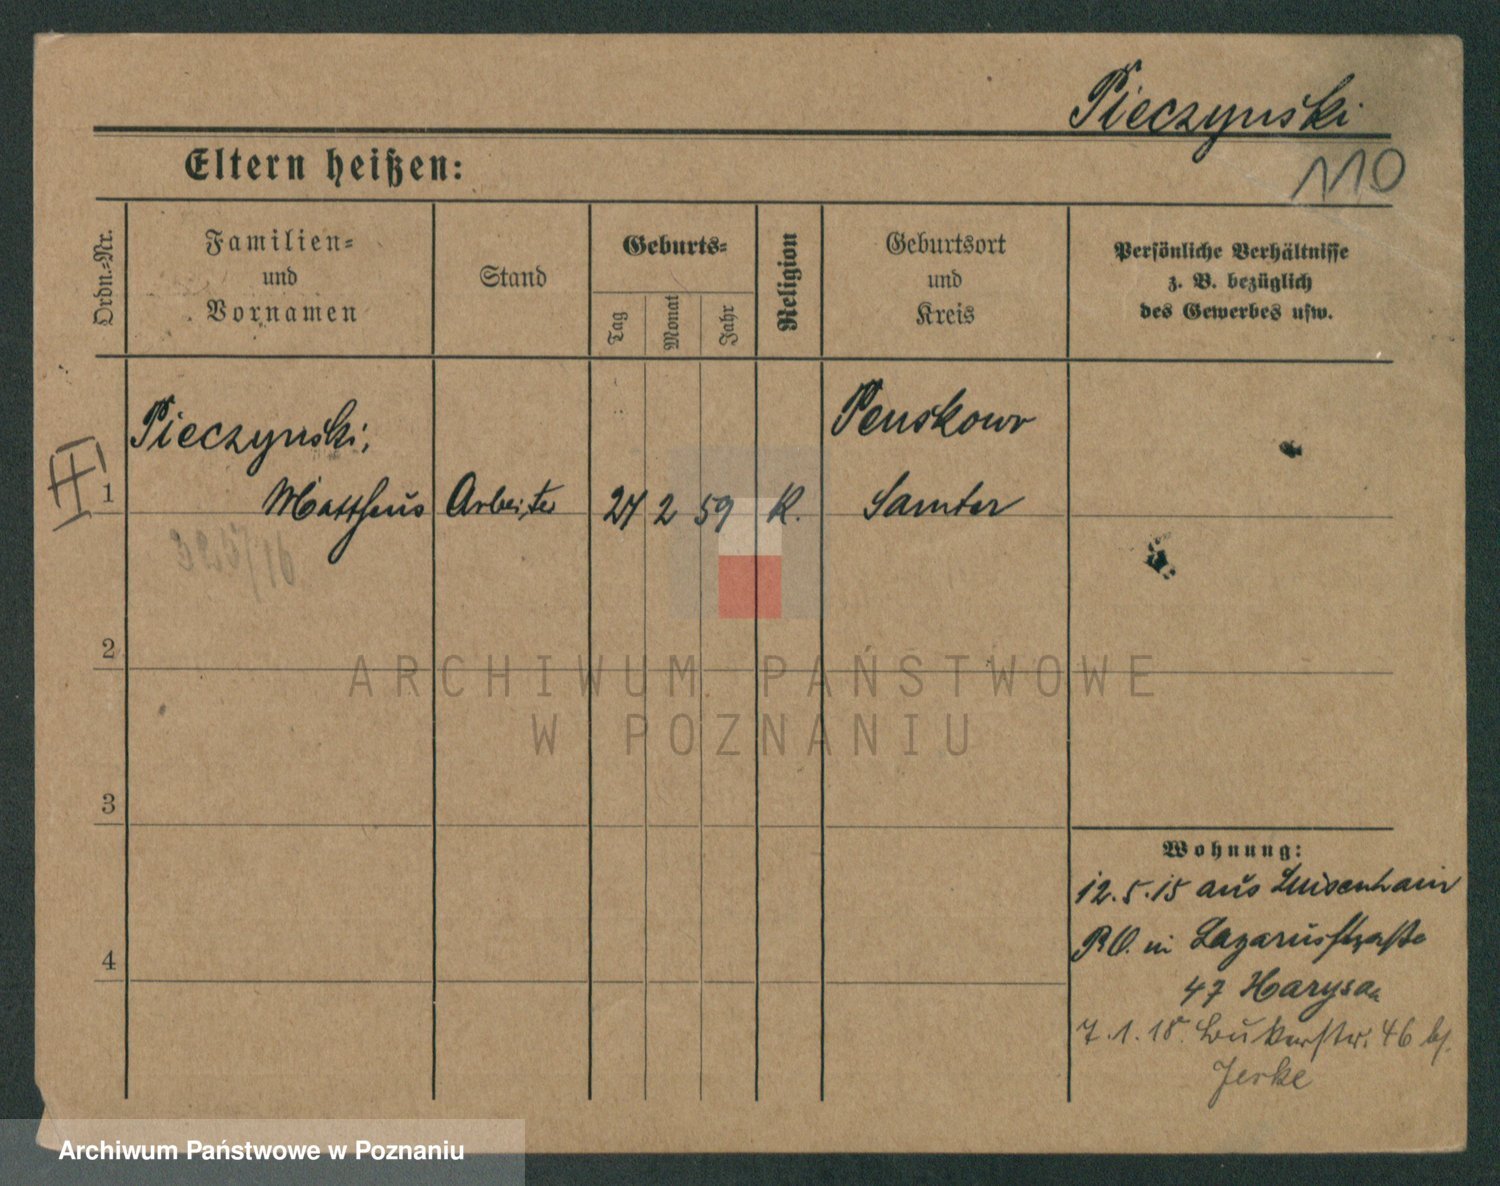 Pieczynski
110
Eltern heißen:
Ordn.=Nr.
Familien=
und
Vornamen
Stand
Geburts=
Tag
Monat
Jahr
Religion
Geburtsort
und
Kreis
Persönliche Verhältnisse
z. B. bezüglich
des Gewerbes usw.
II
1
Pieczynski,
Mattheus
Arbeiter
24 2 59
K.
Penskowo
Samter
2
3
4
Wohnung:
12.5.15 aus Luisenhain
P.O. in Lazarusstraße
47
7.1.18. 46 bj.
Jerke
ARCHIWUM PAŃSTWOWE
W POZNANIU
Archiwum Państwowe w Poznaniu